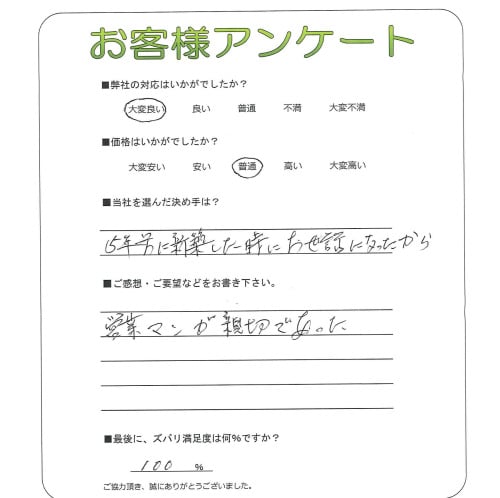 お客様アンケート
■弊社の対応はいかがでしたか?
大変良い 良い 普通 不満 大変不満
■価格はいかがでしたか?
大変安い 安い 普通 高い 大変高い
■当社を選んだ決め手は?
15年前に新築した時にお世話になったから
■ご感想・ご要望などをお書き下さい。
営業マンが親切であった
■最後に、ズバリ満足度は何%ですか?
100 %
ご協力頂き、誠にありがとうございました。